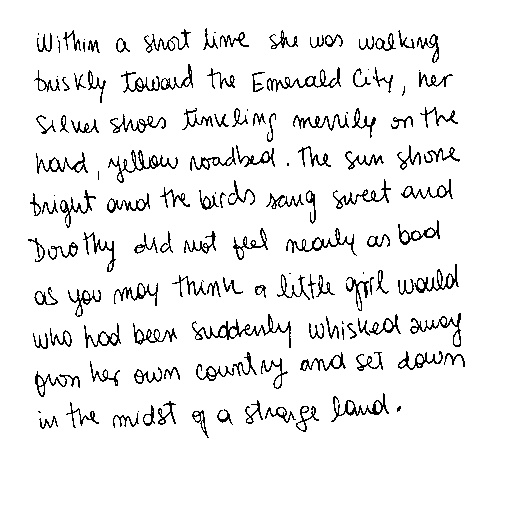 Within a short time she was walking
briskly toward the Emerald City, her
Silver shoes tinkling merrily on the
hard, yellow roadbed. The sun shone
bright and the birds sang sweet and
Dorothy did not feel nearly as bad
as you may think a little girl would
who had been suddenly whisked away
from her own country and set down
in the midst of a strange land.